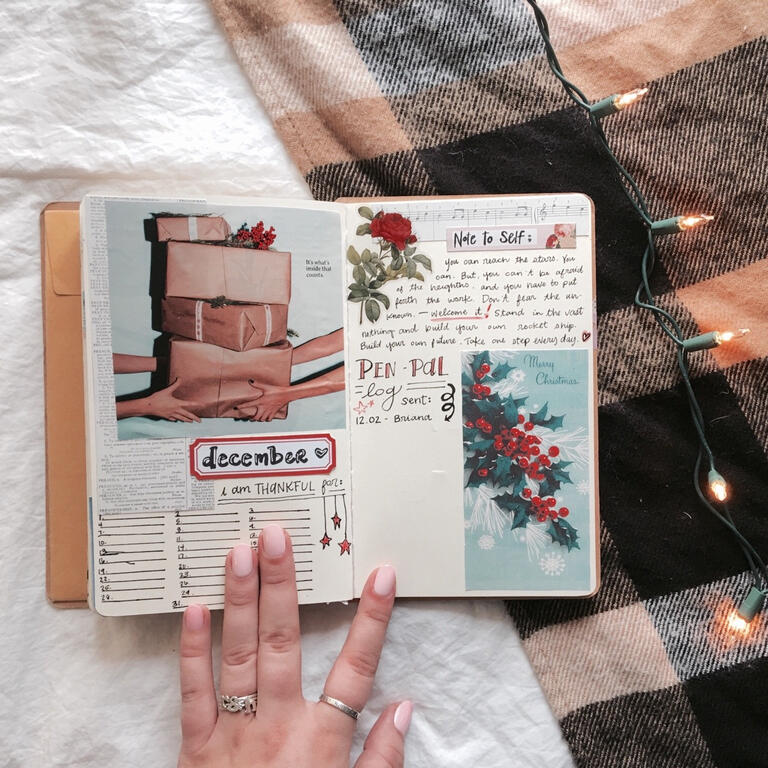 It's what's
inside that
counts.
december
i am THANKFUL for:
1. 2. 3.
4. 5. 6.
7. 8. 9.
10. 11. 12.
13. 14. 15.
16. 17.
19. 20.
22. 23.
25. 26.
28. 29.
31.
Note to Self:
you can reach the stars. You
can. But, you can't be afraid
of the heights, and you have to put
forth the work. Don't fear the un-
known. — Welcome it! Stand in the vast
nothing and build your own rocket ship.
Build your own future. Take one step every day.
PEN-PAL
log sent:
12.02 - Briana
Merry
Christmas